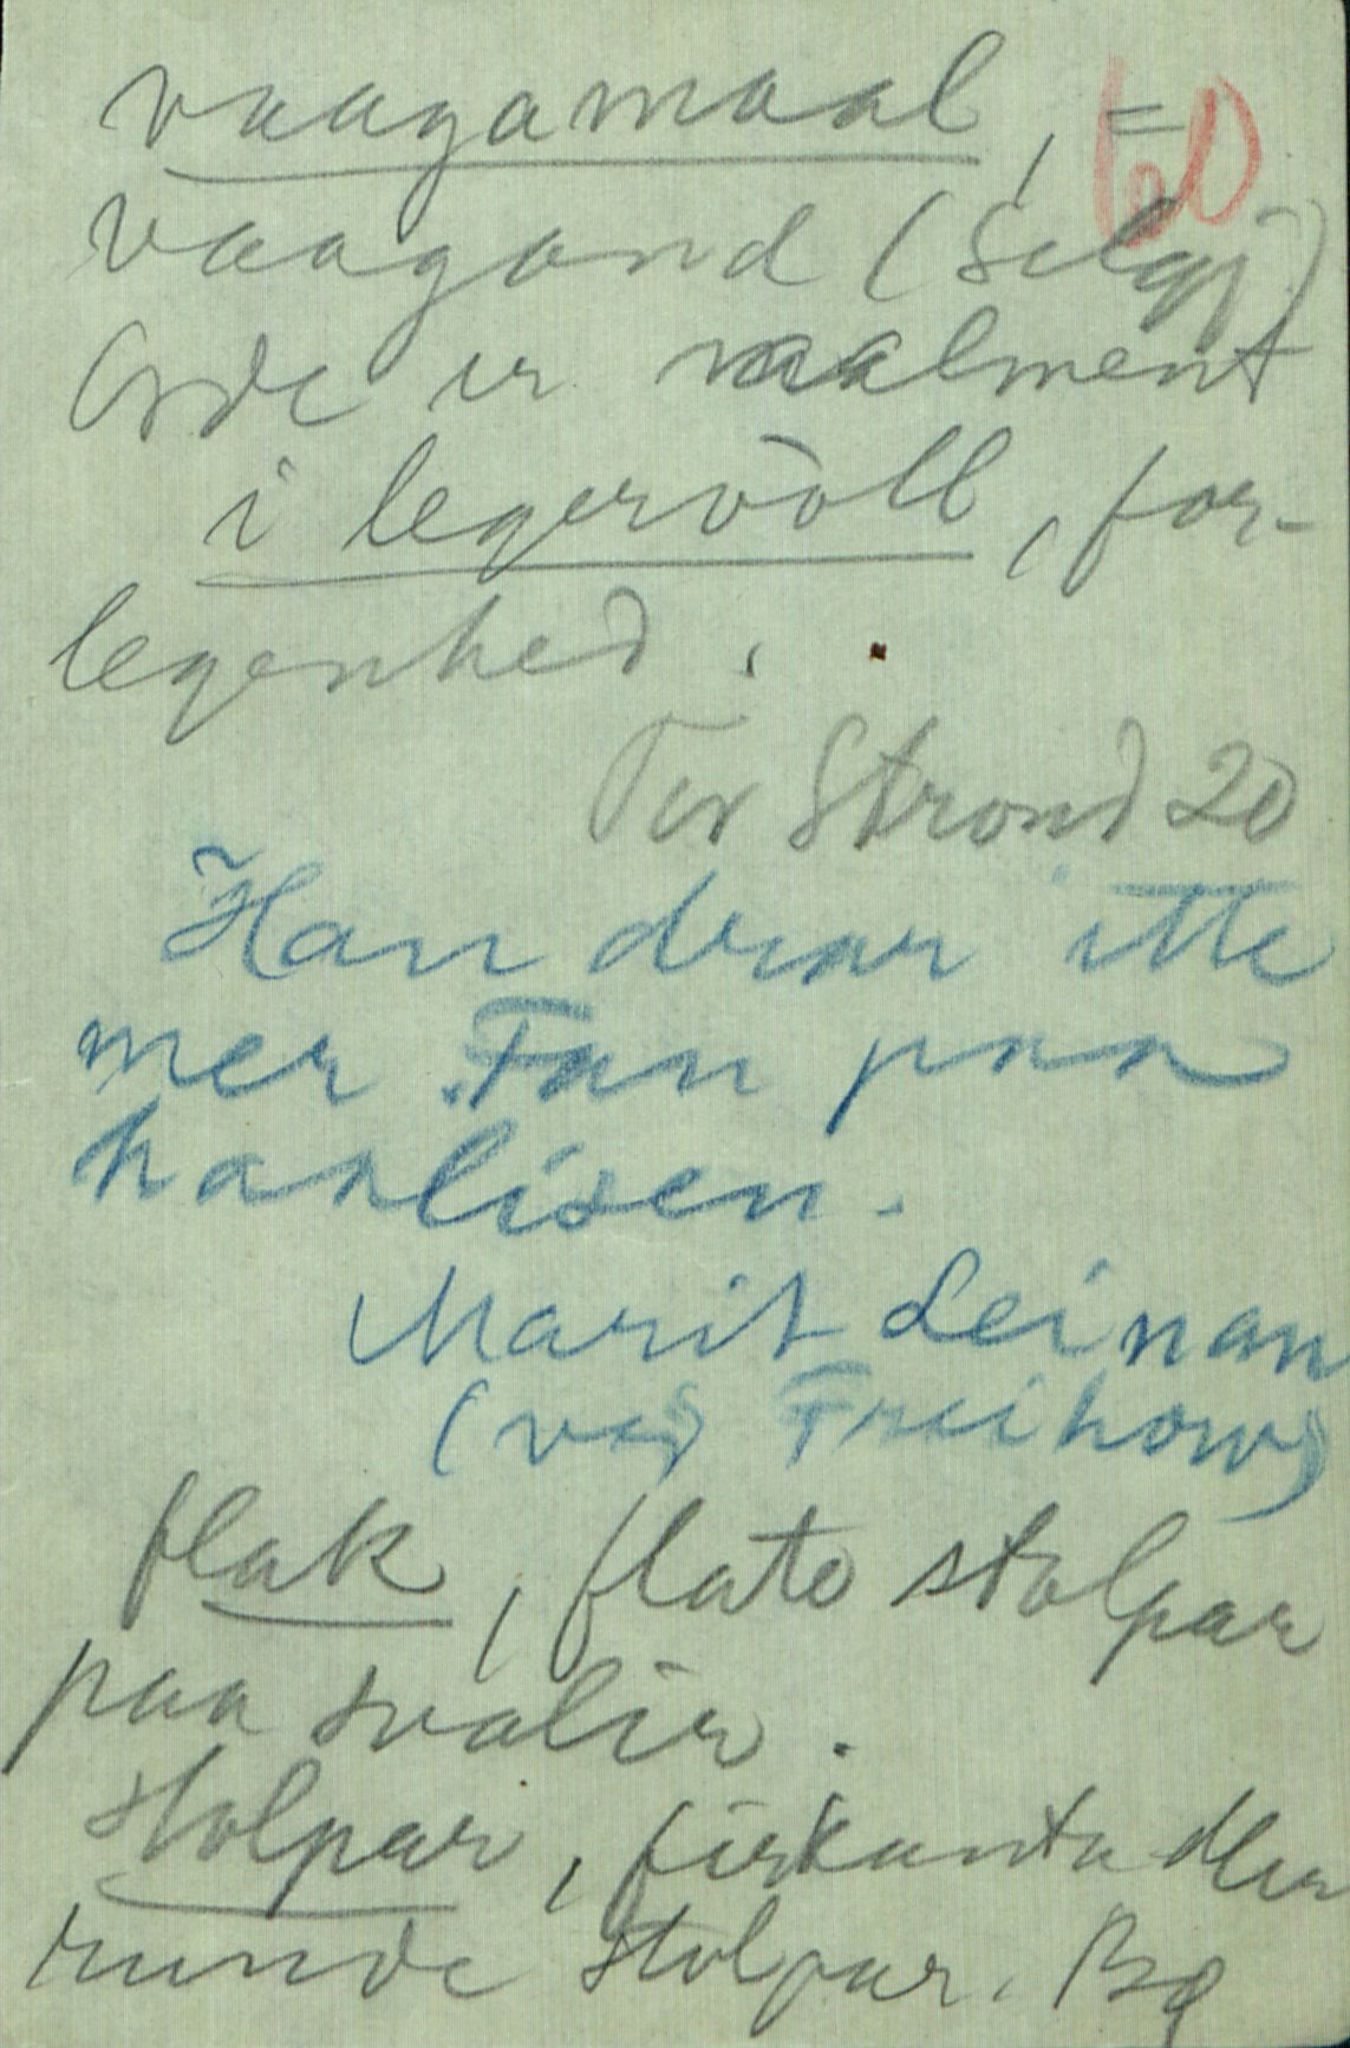 vaagamaal, =
60
vaagand (Selgj)
Orde er aalment
i legervòll, for-
legenhed.
Tor Strond 20
Han drar itte
mer Fan paa
haalisen.
Marit Leinan
(ved Freihow)
flak, flate stolpar
paa svalir.
Stolpar, firkanta eller
runde stolpar. Bø